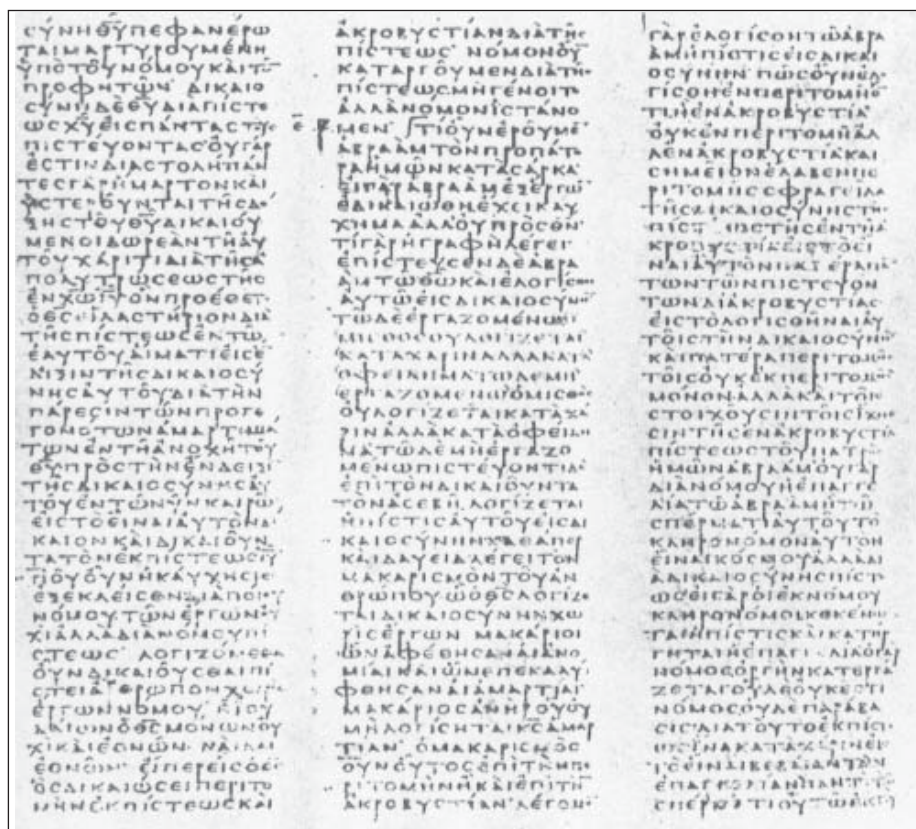 ϹΥΝΗΘΥΠΕΦΑΝΕΡΩ
ΤΑΙΜΑΡΤΥΡΟΥΜΕΝΗ
ΥΠΟΤΟΥΝΟΜΟΥΚΑΙΤΩ
ΠΡΟΦΗΤΩΝ ΔΙΚΑΙΟ
ϹΥΝΗΔΕΘΥΔΙΑΠΙϹΤΕ
ΩϹΧΥΕΙϹΠΑΝΤΑϹΤΟΥ
ΠΙϹΤΕΥΟΝΤΑϹΟΥΓΑΡ
ΕϹΤΙΝΔΙΑϹΤΟΛΗΠΑΝ
ΤΕϹΓΑΡΗΜΑΡΤΟΝΚΑΙ
ΥϹΤΕΡΟΥΝΤΑΙΤΗϹΔΟ
ΞΗϹΤΟΥΘΥΔΙΚΑΙΟΥ
ΜΕΝΟΙΔΩΡΕΑΝΤΗΑΥ
ΤΟΥΧΑΡΙΤΙΔΙΑΤΗϹΑ
ΠΟΛΥΤΡΩϹΕΩϹΤΗϹ
ΕΝΧΩΙΥΟΝΠΡΟΕΘΕΤΟ
ΟΘϹΙΛΑϹΤΗΡΙΟΝΔΙΑ
ΤΗϹΠΙϹΤΕΩϹΕΝΤΩ
ΕΑΥΤΟΥΑΙΜΑΤΙΕΙϹΕ
ΝΔΙΞΙΝΤΗϹΔΙΚΑΙΟϹΥ
ΝΗϹΑΥΤΟΥΔΙΑΤΗΝ
ΠΑΡΕϹΙΝΤΩΝΠΡΟΓΕ
ΓΟΝΟΤΩΝΑΜΑΡΤΗΜΑ
ΤΩΝΕΝΤΗΑΝΟΧΗΤΟΥ
ΘΥΠΡΟϹΤΗΝΕΝΔΕΙΞΙ
ΤΗϹΔΙΚΑΙΟϹΥΝΗϹΑΥ
ΤΟΥΕΝΤΩΝΥΝΚΑΙΡΩ
ΕΙϹΤΟΕΙΝΑΙΑΥΤΟΝΔΙ
ΚΑΙΟΝΚΑΙΔΙΚΑΙΟΥΝ
ΤΑΤΟΝΕΚΠΙϹΤΕΩϹΙΥ
ΠΟΥΟΥΝΗΚΑΥΧΗϹΙϹ
ΕΞΕΚΛΕΙϹΘΗΔΙΑΠΟΙΟΥ
ΝΟΜΟΥΤΩΝΕΡΓΩΝΟΥ
ΧΙΑΛΛΑΔΙΑΝΟΜΟΥΠΙ
ϹΤΕΩϹ ΛΟΓΙΖΟΜΕΘΑ
ΟΥΝΔΙΚΑΙΟΥϹΘΑΙΠΙ
ϹΤΕΙΑΝΘΡΩΠΟΝΧΩΡΙϹ
ΕΡΓΩΝΝΟΜΟΥ ΗΙΟΥ
ΔΑΙΩΝΟΘϹΜΟΝΩΝΟΥ
ΧΙΚΑΙΕΘΝΩΝ ΝΑΙΚΑΙ
ΕΘΝΩΝ ΕΙΠΕΡΕΙϹΟΘϹ
ΟϹΔΙΚΑΙΩϹΕΙΠΕΡΙΤΟ
ΜΗΝΕΚΠΙϹΤΕΩϹΚΑΙ
ΑΚΡΟΒΥϹΤΙΑΝΔΙΑΤΗϹ
ΠΙϹΤΕΩϹ ΝΟΜΟΝΟΥ
ΚΑΤΑΡΓΟΥΜΕΝΔΙΑΤΗϹ
ΠΙϹΤΕΩϹΜΗΓΕΝΟΙΤΟ
ΑΛΛΑΝΟΜΟΝΙϹΤΑΝΟ
ΜΕΝ ΤΙΟΥΝΕΡΟΥΜΕ
ΑΒΡΑΑΜΤΟΝΠΡΟΠΑΤΟ
ΡΑΗΜΩΝΚΑΤΑϹΑΡΚΑ
ΕΙΓΑΡΑΒΡΑΑΜΕΞΕΡΓΩ
ΕΔΙΚΑΙΩΘΗΕΧΕΙΚΑΥ
ΧΗΜΑΑΛΛΟΥΠΡΟϹΘΝ
ΤΙΓΑΡΗΓΡΑΦΗΛΕΓΕΙ
ΕΠΙϹΤΕΥϹΕΝΔΕΑΒΡΑ
ΑΜΤΩΘΩΚΑΙΕΛΟΓΙϹΘΗ
ΑΥΤΩΕΙϹΔΙΚΑΙΟϹΥΝΗ
ΤΩΔΕΕΡΓΑΖΟΜΕΝΩΟ
ΜΙϹΘΟϹΟΥΛΟΓΙΖΕΤΑΙ
ΚΑΤΑΧΑΡΙΝΑΛΛΑΚΑΤΑ
ΟΦΕΙΛΗΜΑΤΩΔΕΜΗ
ΕΡΓΑΖΟΜΕΝΩΟΜΙϹΘΟϹ
ΟΥΛΟΓΙΖΕΤΑΙΚΑΤΑΧΑ
ΡΙΝΑΛΛΑΚΑΤΑΟΦΕΙΛΗ
ΜΑΤΩΔΕΜΗΕΡΓΑΖΟ
ΜΕΝΩΠΙϹΤΕΥΟΝΤΙΔΕ
ΕΠΙΤΟΝΔΙΚΑΙΟΥΝΤΑ
ΤΟΝΑϹΕΒΗ ΛΟΓΙΖΕΤΑΙ
ΗΠΙϹΤΙϹΑΥΤΟΥΕΙϹΔΙ
ΚΑΙΟϹΥΝΗΝΚΑΘΑΠΕΡ
ΚΑΙΔΑΥΕΙΔΛΕΓΕΙΤΟΝ
ΜΑΚΑΡΙϹΜΟΝΤΟΥΑΝ
ΘΡΩΠΟΥΩΟΘϹΛΟΓΙΖΕ
ΤΑΙΔΙΚΑΙΟϹΥΝΗΝΧΩ
ΡΙϹΕΡΓΩΝ ΜΑΚΑΡΙΟΙ
ΩΝΑΦΕΘΗϹΑΝΑΙΑΝΟ
ΜΙΑΙΚΑΙΩΝΕΠΕΚΑΛΥ
ΦΘΗϹΑΝΑΙΑΜΑΡΤΙΑΙ
ΜΑΚΑΡΙΟϹΑΝΗΡΟΥΟΥ
ΜΗΛΟΓΙϹΗΤΑΙΚϹΑΜΑΡ
ΤΙΑΝ ΟΜΑΚΑΡΙϹΜΟϹ
ΟΥΝΟΥΤΟϹΕΠΙΤΗΝΠΕ
ΡΙΤΟΜΗΝΗΚΑΙΕΠΙΤΗΝ
ΑΚΡΟΒΥϹΤΙΑΝΛΕΓΟΜΕ
ΓΑΡΕΛΟΓΙϹΘΗΤΩΑΒΡΑ
ΑΜΗΠΙϹΤΙϹΕΙϹΔΙΚΑΙ
ΟϹΥΝΗΝ ΠΩϹΟΥΝΕΛΟ
ΓΙϹΘΗΕΝΠΕΡΙΤΟΜΗΟ
ΤΙΗΕΝΑΚΡΟΒΥϹΤΙΑ
ΟΥΚΕΝΠΕΡΙΤΟΜΗΑΛ
ΛΕΝΑΚΡΟΒΥϹΤΙΑΚΑΙ
ϹΗΜΕΙΟΝΕΛΑΒΕΝΠΕ
ΡΙΤΟΜΗϹϹΦΡΑΓΕΙΔΑ
ΤΗϹΔΙΚΑΙΟϹΥΝΗϹΤΗϹ
ΠΙϹΤΕΩϹΤΗϹΕΝΤΗΑ
ΚΡΟΒΥϹΤΙΑΕΙϹΤΟΕΙ
ΝΑΙΑΥΤΟΝΠΑΤΕΡΑΠΑ
ΤΩΝΤΩΝΠΙϹΤΕΥΟΝ
ΤΩΝΔΙΑΚΡΟΒΥϹΤΙΑϹ
ΕΙϹΤΟΛΟΓΙϹΘΗΝΑΙΑΥ
ΤΟΙϹΤΗΝΔΙΚΑΙΟϹΥΝΗ
ΚΑΙΠΑΤΕΡΑΠΕΡΙΤΟΜΗϹ
ΤΟΙϹΟΥΚΕΚΠΕΡΙΤΟΜΗϹ
ΜΟΝΟΝΑΛΛΑΚΑΙΤΟΙϹ
ϹΤΟΙΧΟΥϹΙΝΤΟΙϹΙΧΝΕ
ϹΙΝΤΗϹΕΝΑΚΡΟΒΥϹΤΙΑ
ΠΙϹΤΕΩϹΤΟΥΠΑΤΡΟϹ
ΗΜΩΝΑΒΡΑΑΜΟΥΓΑΡ
ΔΙΑΝΟΜΟΥΗΕΠΑΓΓΕ
ΛΙΑΤΩΑΒΡΑΑΜΗΤΩ
ϹΠΕΡΜΑΤΙΑΥΤΟΥΤΟ
ΚΛΗΡΟΝΟΜΟΝΑΥΤΟΝ
ΕΙΝΑΙΚΟϹΜΟΥΑΛΛΑΔΙ
ΑΔΙΚΑΙΟϹΥΝΗϹΠΙϹΤΕ
ΩϹΕΙΓΑΡΟΙΕΚΝΟΜΟΥ
ΚΛΗΡΟΝΟΜΟΙΚΕΚΕΝΩ
ΤΑΙΗΠΙϹΤΙϹΚΑΙΚΑΤΗΡ
ΓΗΤΑΙΗΕΠΑΓΓΕΛΙΑΟΓΑΡ
ΝΟΜΟϹΟΡΓΗΝΚΑΤΕΡΓΑ
ΖΕΤΑΙΟΥΔΕΟΥΚΕϹΤΙ
ΝΟΜΟϹΟΥΔΕΠΑΡΑΒΑ
ϹΙϹΔΙΑΤΟΥΤΟΕΚΠΙϹΤΕ
ΩϹΙΝΑΚΑΤΑΧΑΡΙΝΕΙϹ
ΤΟΕΙΝΑΙΒΕΒΑΙΑΝΤΗΝ
ΕΠΑΓΓΕΛΙΑΝΠΑΝΤΙΤΩ
ϹΠΕΡΜΑΤΙΟΥΤΩΕΚΤΟΥ